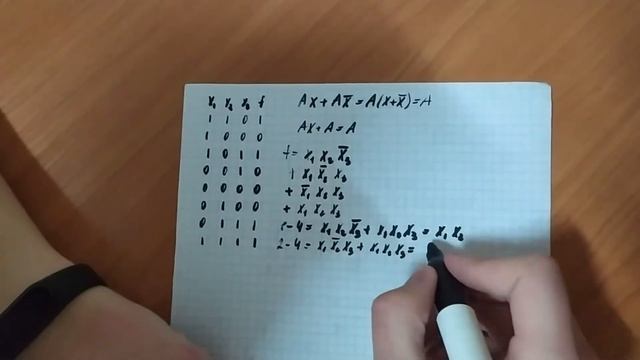 x₁ x₂ x₃ f
1 1 0 1
1 0 0 0
1 0 1 1
0 0 1 0
0 0 0 0
0 1 0 0
0 1 1 1
1 1 1 1
Ax + Ax̅ = A(x+x̅) = A
Ax + A = A
f = x₁ x₂ x̅₃
+ x₁ x̅₂ x₃
+ x̅₁ x₂ x₃
+ x₁ x₂ x₃
1-4 = x₁ x₂ x̅₃ + x₁ x₂ x₃ = x₁ x₂
2-4 = x₁ x̅₂ x₃ + x₁ x₂ x₃ =